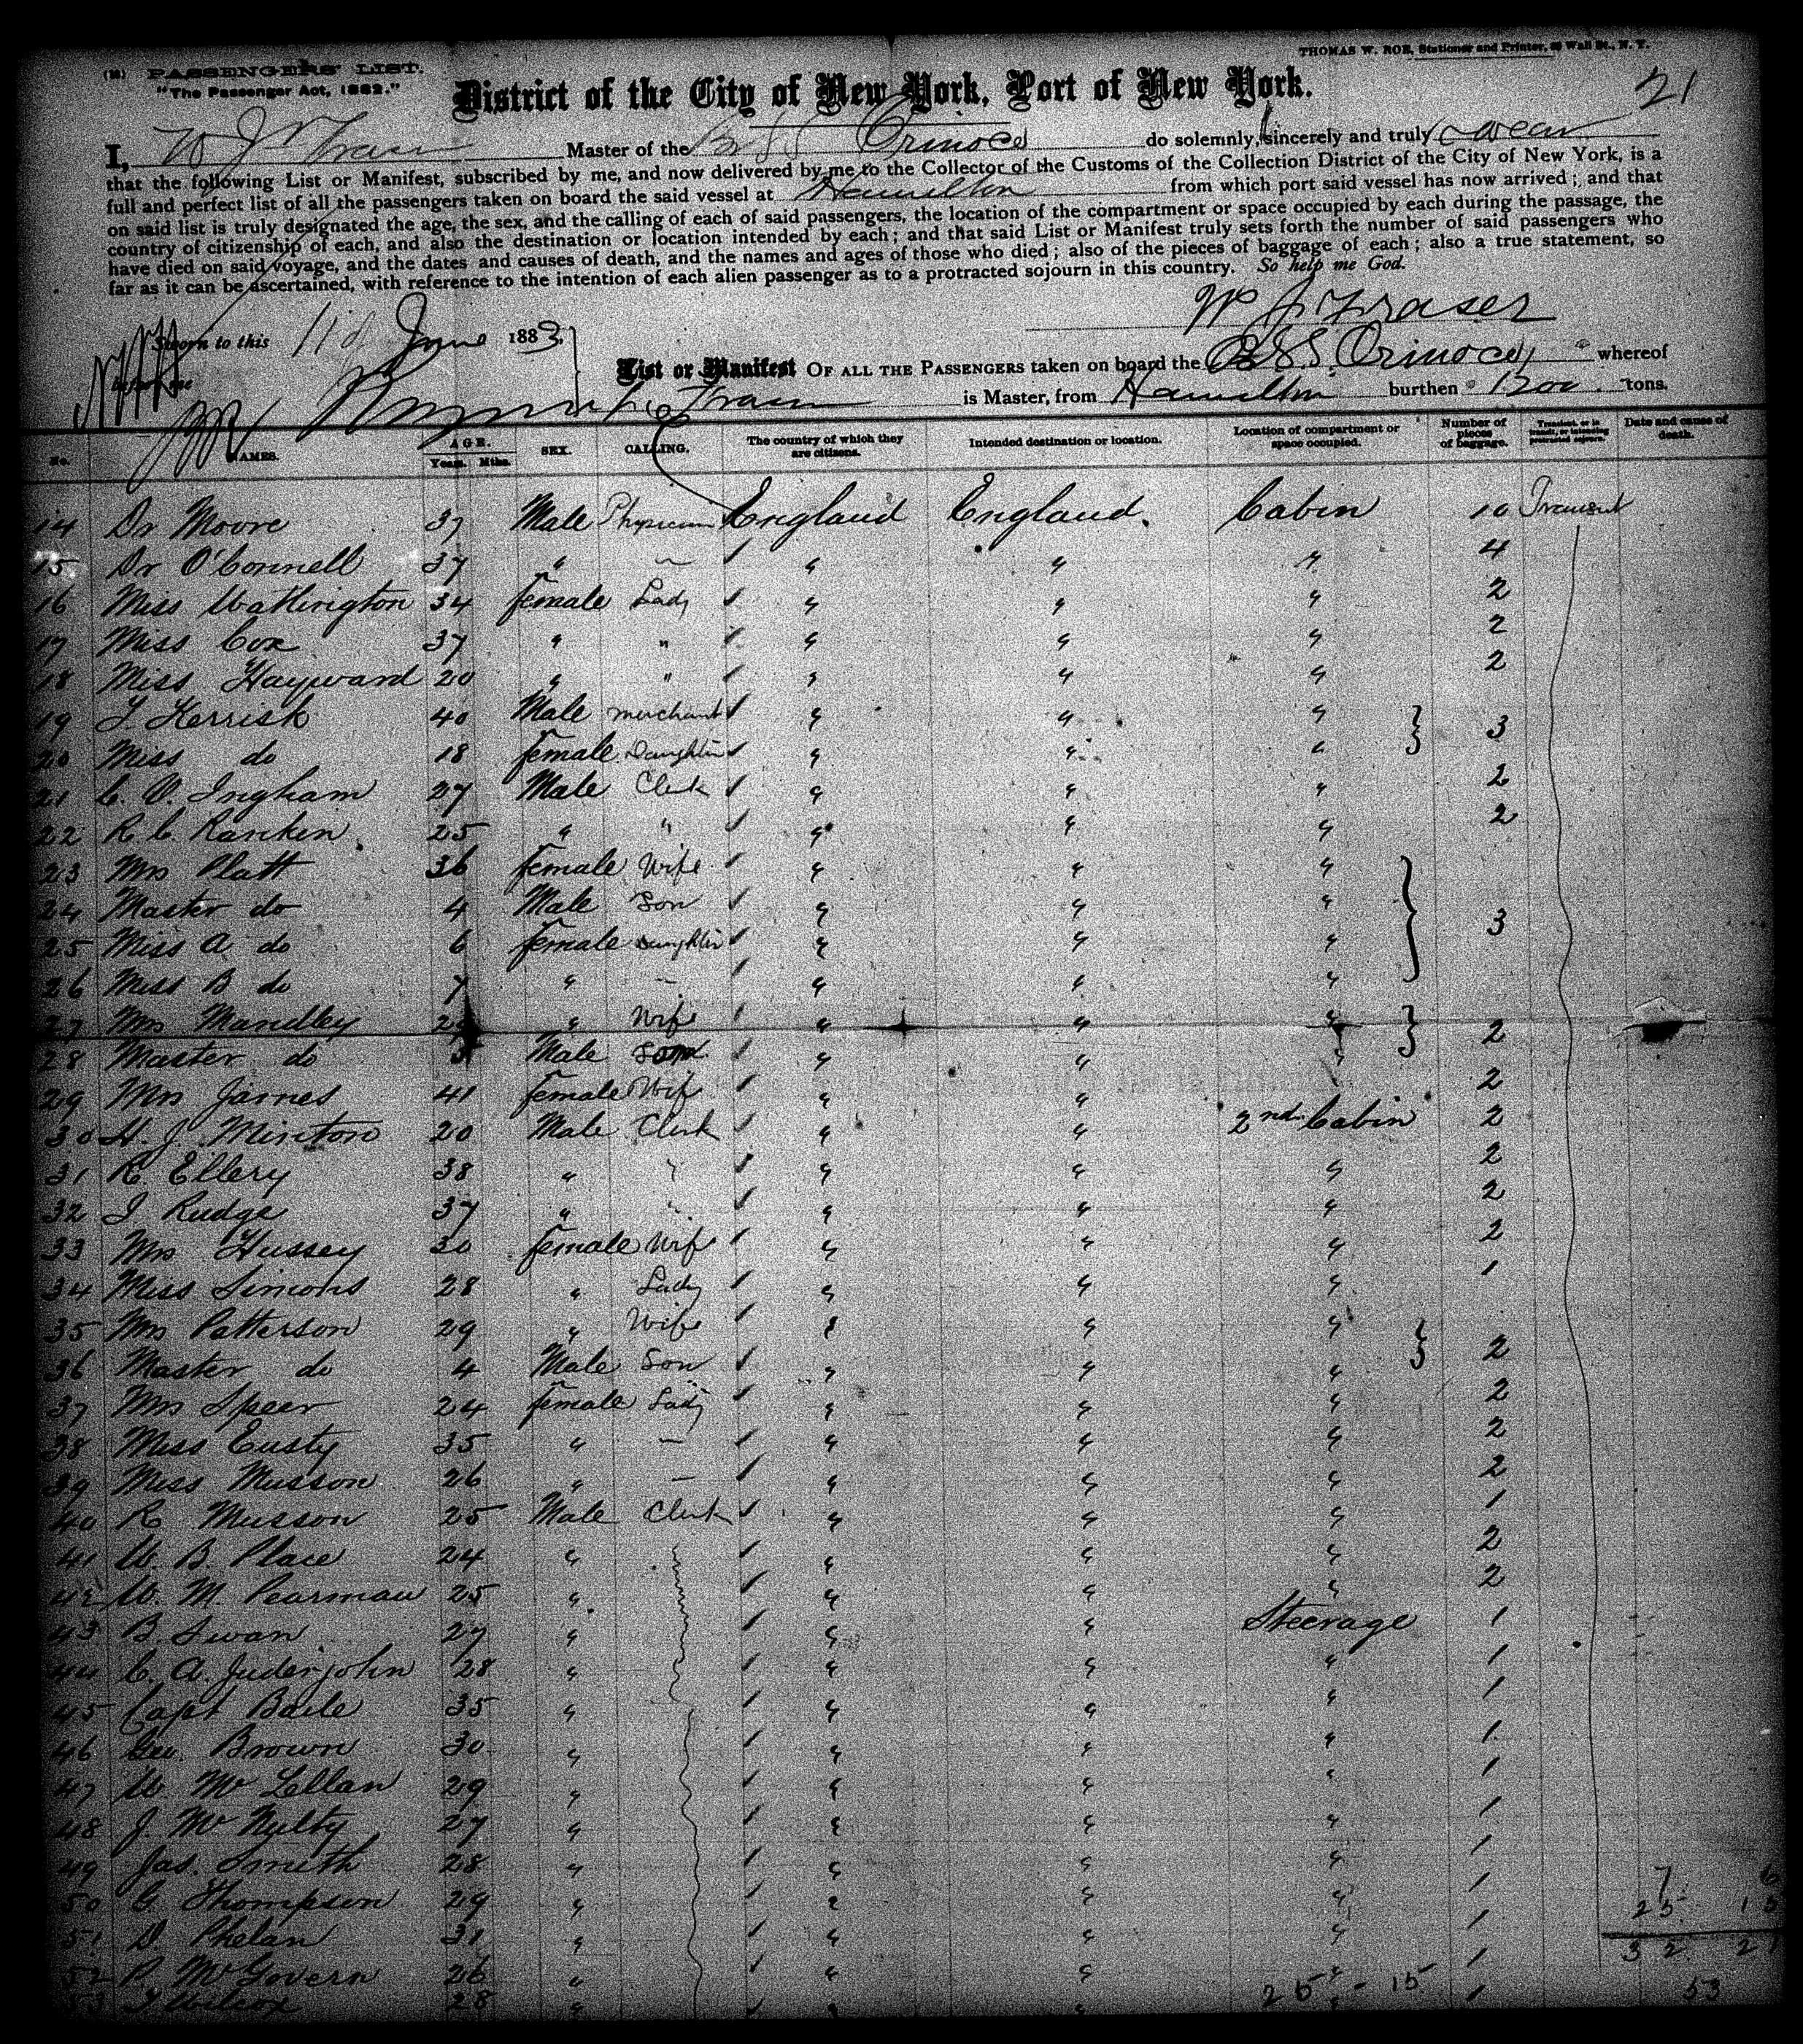 THOMAS W. ROE, Stationer and Printer, Wall St., N. Y.
(M) PASSENGERS' LIST.
"The Passenger Act, 1882."
District of the City of New York, Port of New York.
21
I, W J Fraser Master of the Br SS Orinoco do solemnly, sincerely and truly swear
that the following List or Manifest, subscribed by me, and now delivered by me to the Collector of the Customs of the Collection District of the City of New York, is a
full and perfect list of all the passengers taken on board the said vessel at Hamilton from which port said vessel has now arrived; and that
on said list is truly designated the age, the sex, and the calling of each of said passengers, the location of the compartment or space occupied by each during the passage, the
country of citizenship of each, and also the destination or location intended by each; and that said List or Manifest truly sets forth the number of said passengers who
have died on said voyage, and the dates and causes of death, and the names and ages of those who died; also of the pieces of baggage of each; also a true statement, so
far as it can be ascertained, with reference to the intention of each alien passenger as to a protracted sojourn in this country. So help me God.
W J Fraser
Sworn to this 11 June 1883,
before me
List or Manifest OF ALL THE PASSENGERS taken on board the BSS. Orinoco, whereof
Fraser is Master, from Hamilton burthen 1200 tons.
No. NAMES. AGE. Years. Mths. SEX. CALLING. The country of which they are citizens. Intended destination or location. Location of compartment or space occupied. Number of pieces of baggage. Transient, or in transit, or intending protracted sojourn. Date and cause of death.
14 Dr Moore 37 Male Physician England England. Cabin 10 Transit
15 Dr O'Connell 37 " " " " " 4
16 Miss Watlington 34 female Lady " " " 2
17 Miss Cox 37 " " " " " 2
18 Miss Hayward 20 " " " " " 2
19 T Kerrisk 40 Male merchant " " " } 3
20 Miss do 18 female Daughter " " "
21 C. V. Ingham 27 Male Clerk " " " 2
22 R. C. Rankin 25 " " " " " 2
23 Mrs Platt 36 female Wife " " " }
24 Master do 4 Male Son " " " 3
25 Miss A do 6 female Daughter " " "
26 Miss B do 7 " – " " "
27 Mrs Mandley " Wife " " " } 2
28 Master do Male Son " " "
29 Mrs James 41 female Wife " " 2
30 H. J. Minton 20 Male Clerk " " 2nd Cabin 2
31 R. Ellery 38 " " " " " 2
32 J Rudge 37 " " " " " 2
33 Mrs Hussey 30 female Wife " " " 2
34 Miss Simons 28 " Lady " " " 1
35 Mrs Patterson 29 " Wife " " " } 2
36 Master do 4 Male Son " " "
37 Mrs Speer 24 female Lady " " " 2
38 Miss Eusty 35 " – " " " 2
39 Miss Musson 26 " – " " " 2
40 R Musson 25 Male Clerk " " " 1
41 W. B. Place 24 " " " " 2
42 W. M. Pearman 25 " " " " 2
43 B. Swan 27 " " " Steerage 1
44 C. A. Juderjohn 28 " " " " 1
45 Capt Baile 35 " " " " 1
46 Geo. Brown 30 " " " " 1
47 W. McLellan 29 " " " " 1
48 J. McNulty 27 " " " " 1
49 Jas. Smith 28 " " " " 1
50 G Thompson 29 " " " " 1
51 D. Phelan 31 " " " " 1
52 P. McGovern 26 " " " " 1
53 J Wilcox 28 " " " " 1
7 6
25 15
32 21
25 - 15
53